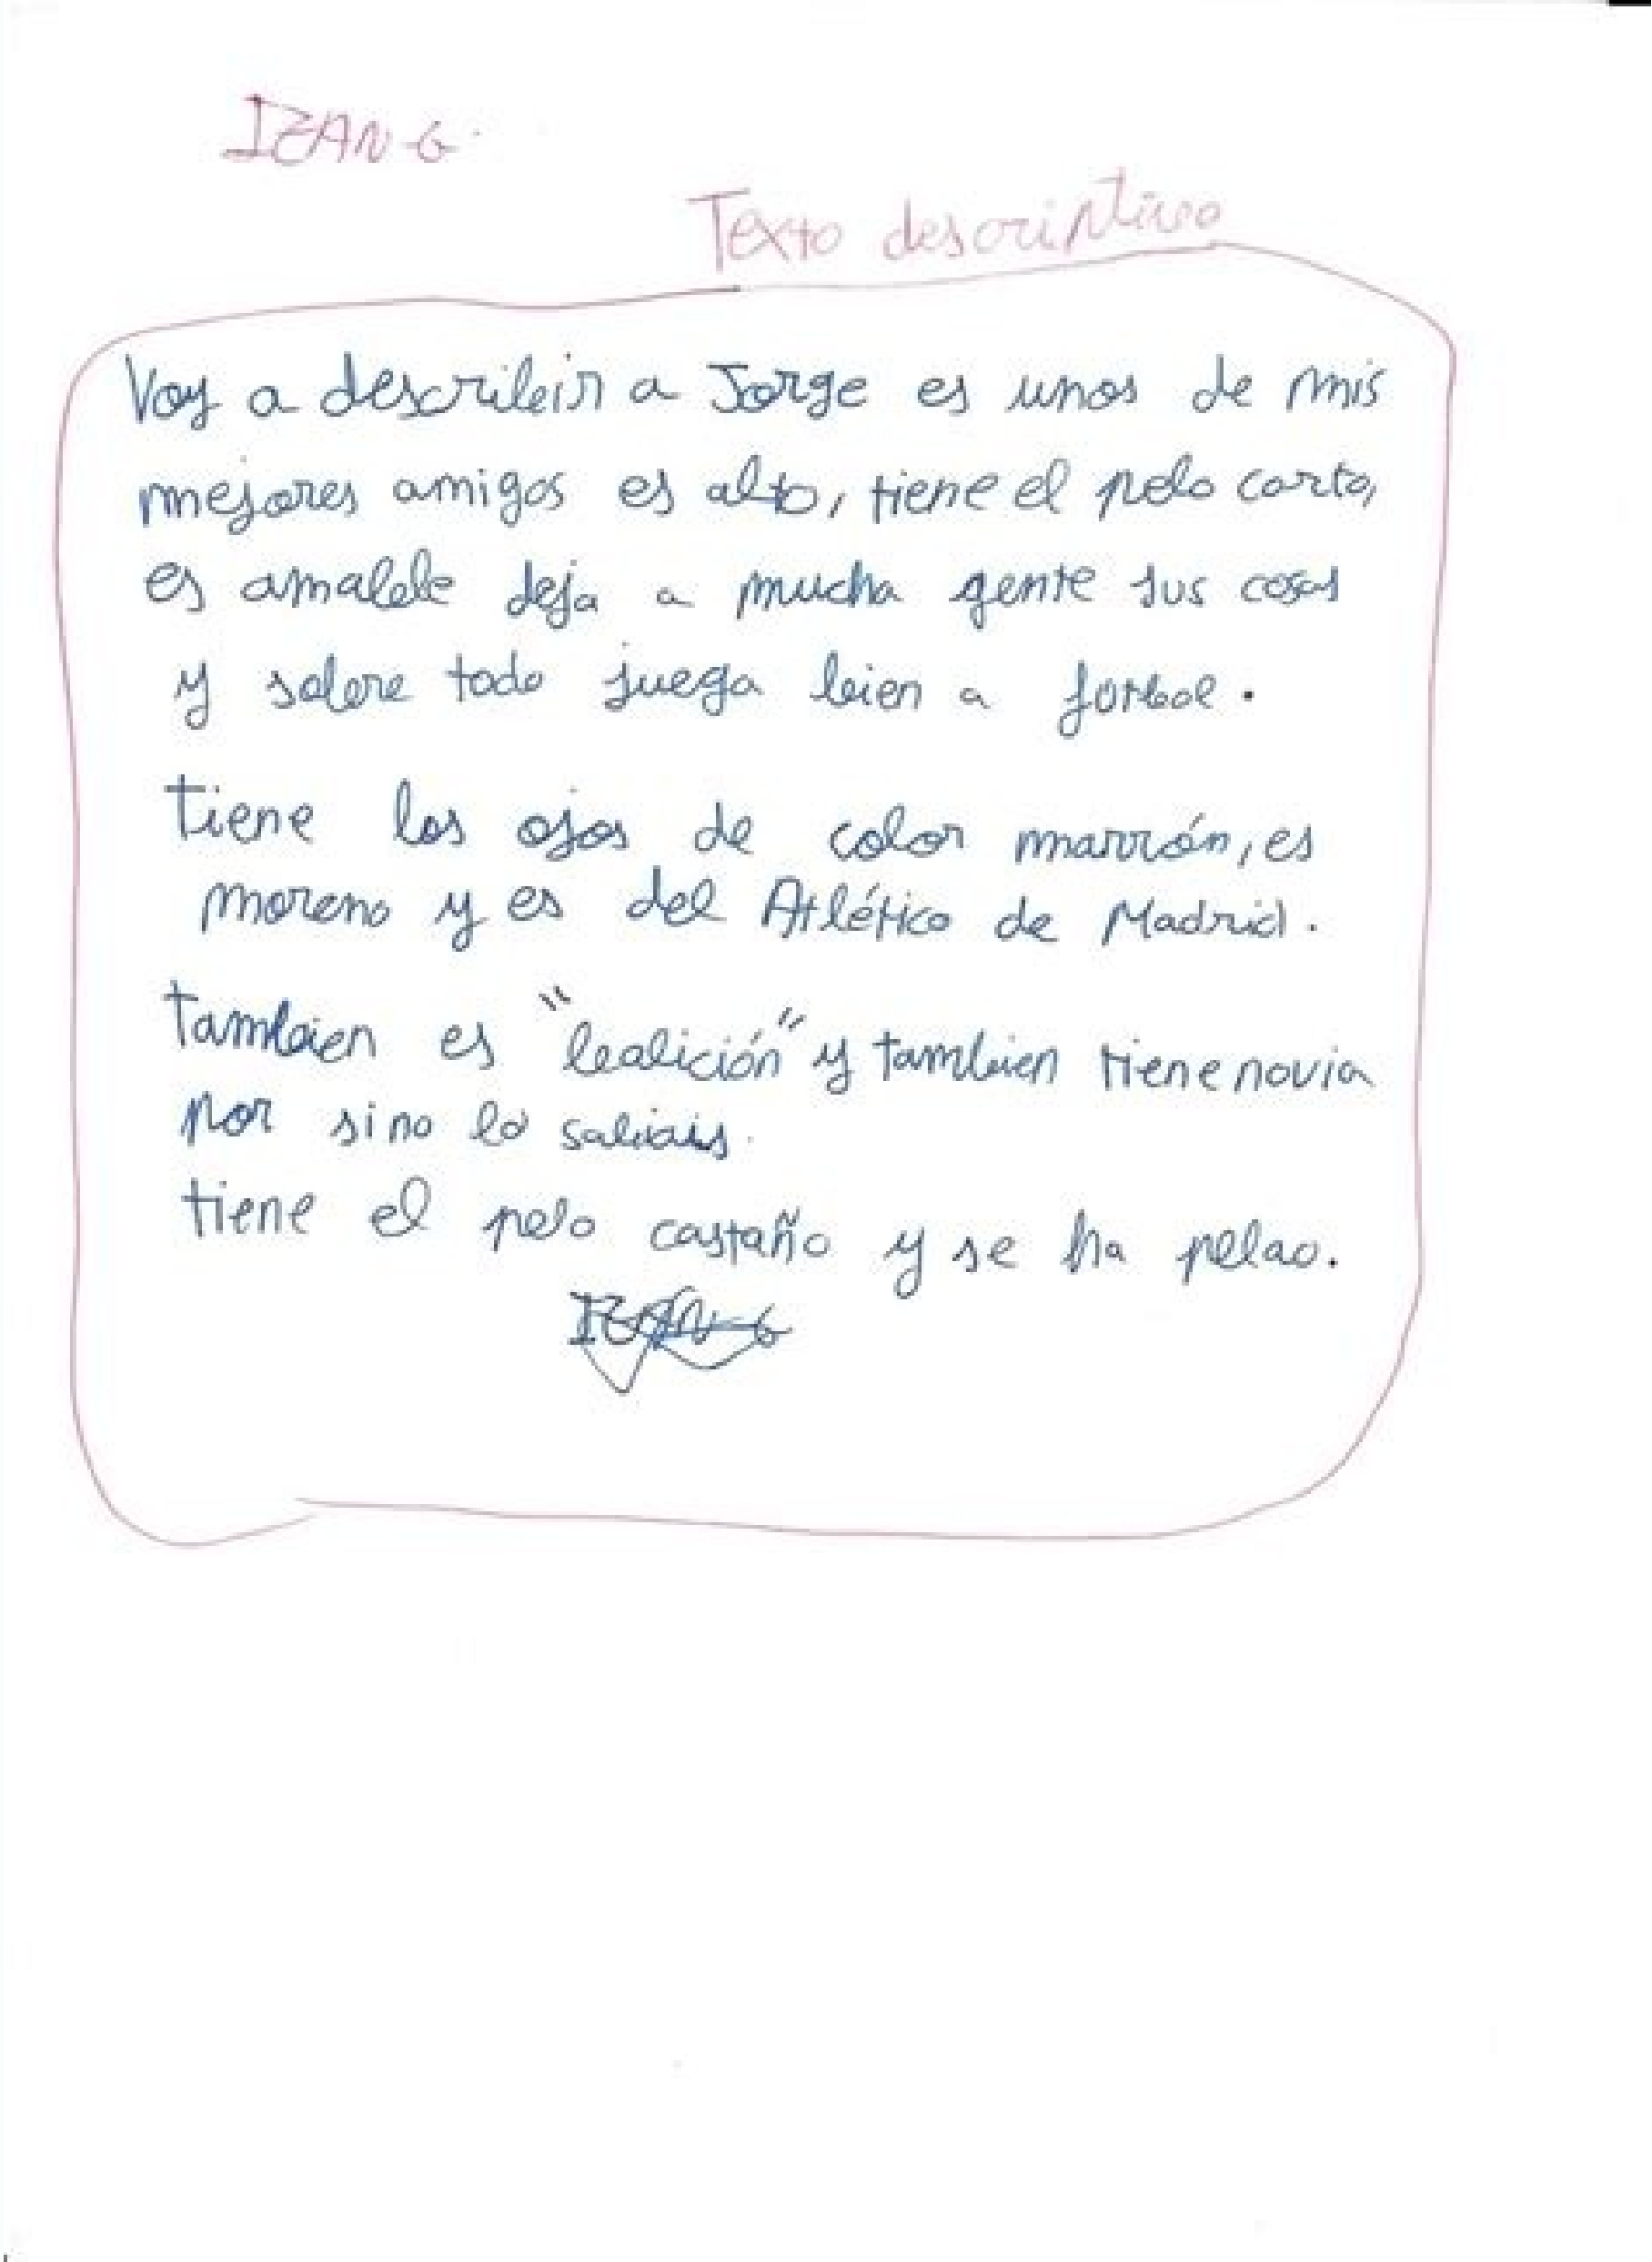 IZAN G.
Texto descriptivo
Voy a describir a Jorge es unos de mis
mejores amigos es alto, tiene el pelo corto,
es amable deja a mucha gente sus cosas
y sobre todo juega bien a fortbol.
tiene los ojos de color marrón, es
moreno y es del Atlético de Madrid.
tambien es "balición" y tambien tiene novia
por si no lo sabiais.
tiene el pelo castaño y se ha pelao.
IZAN G